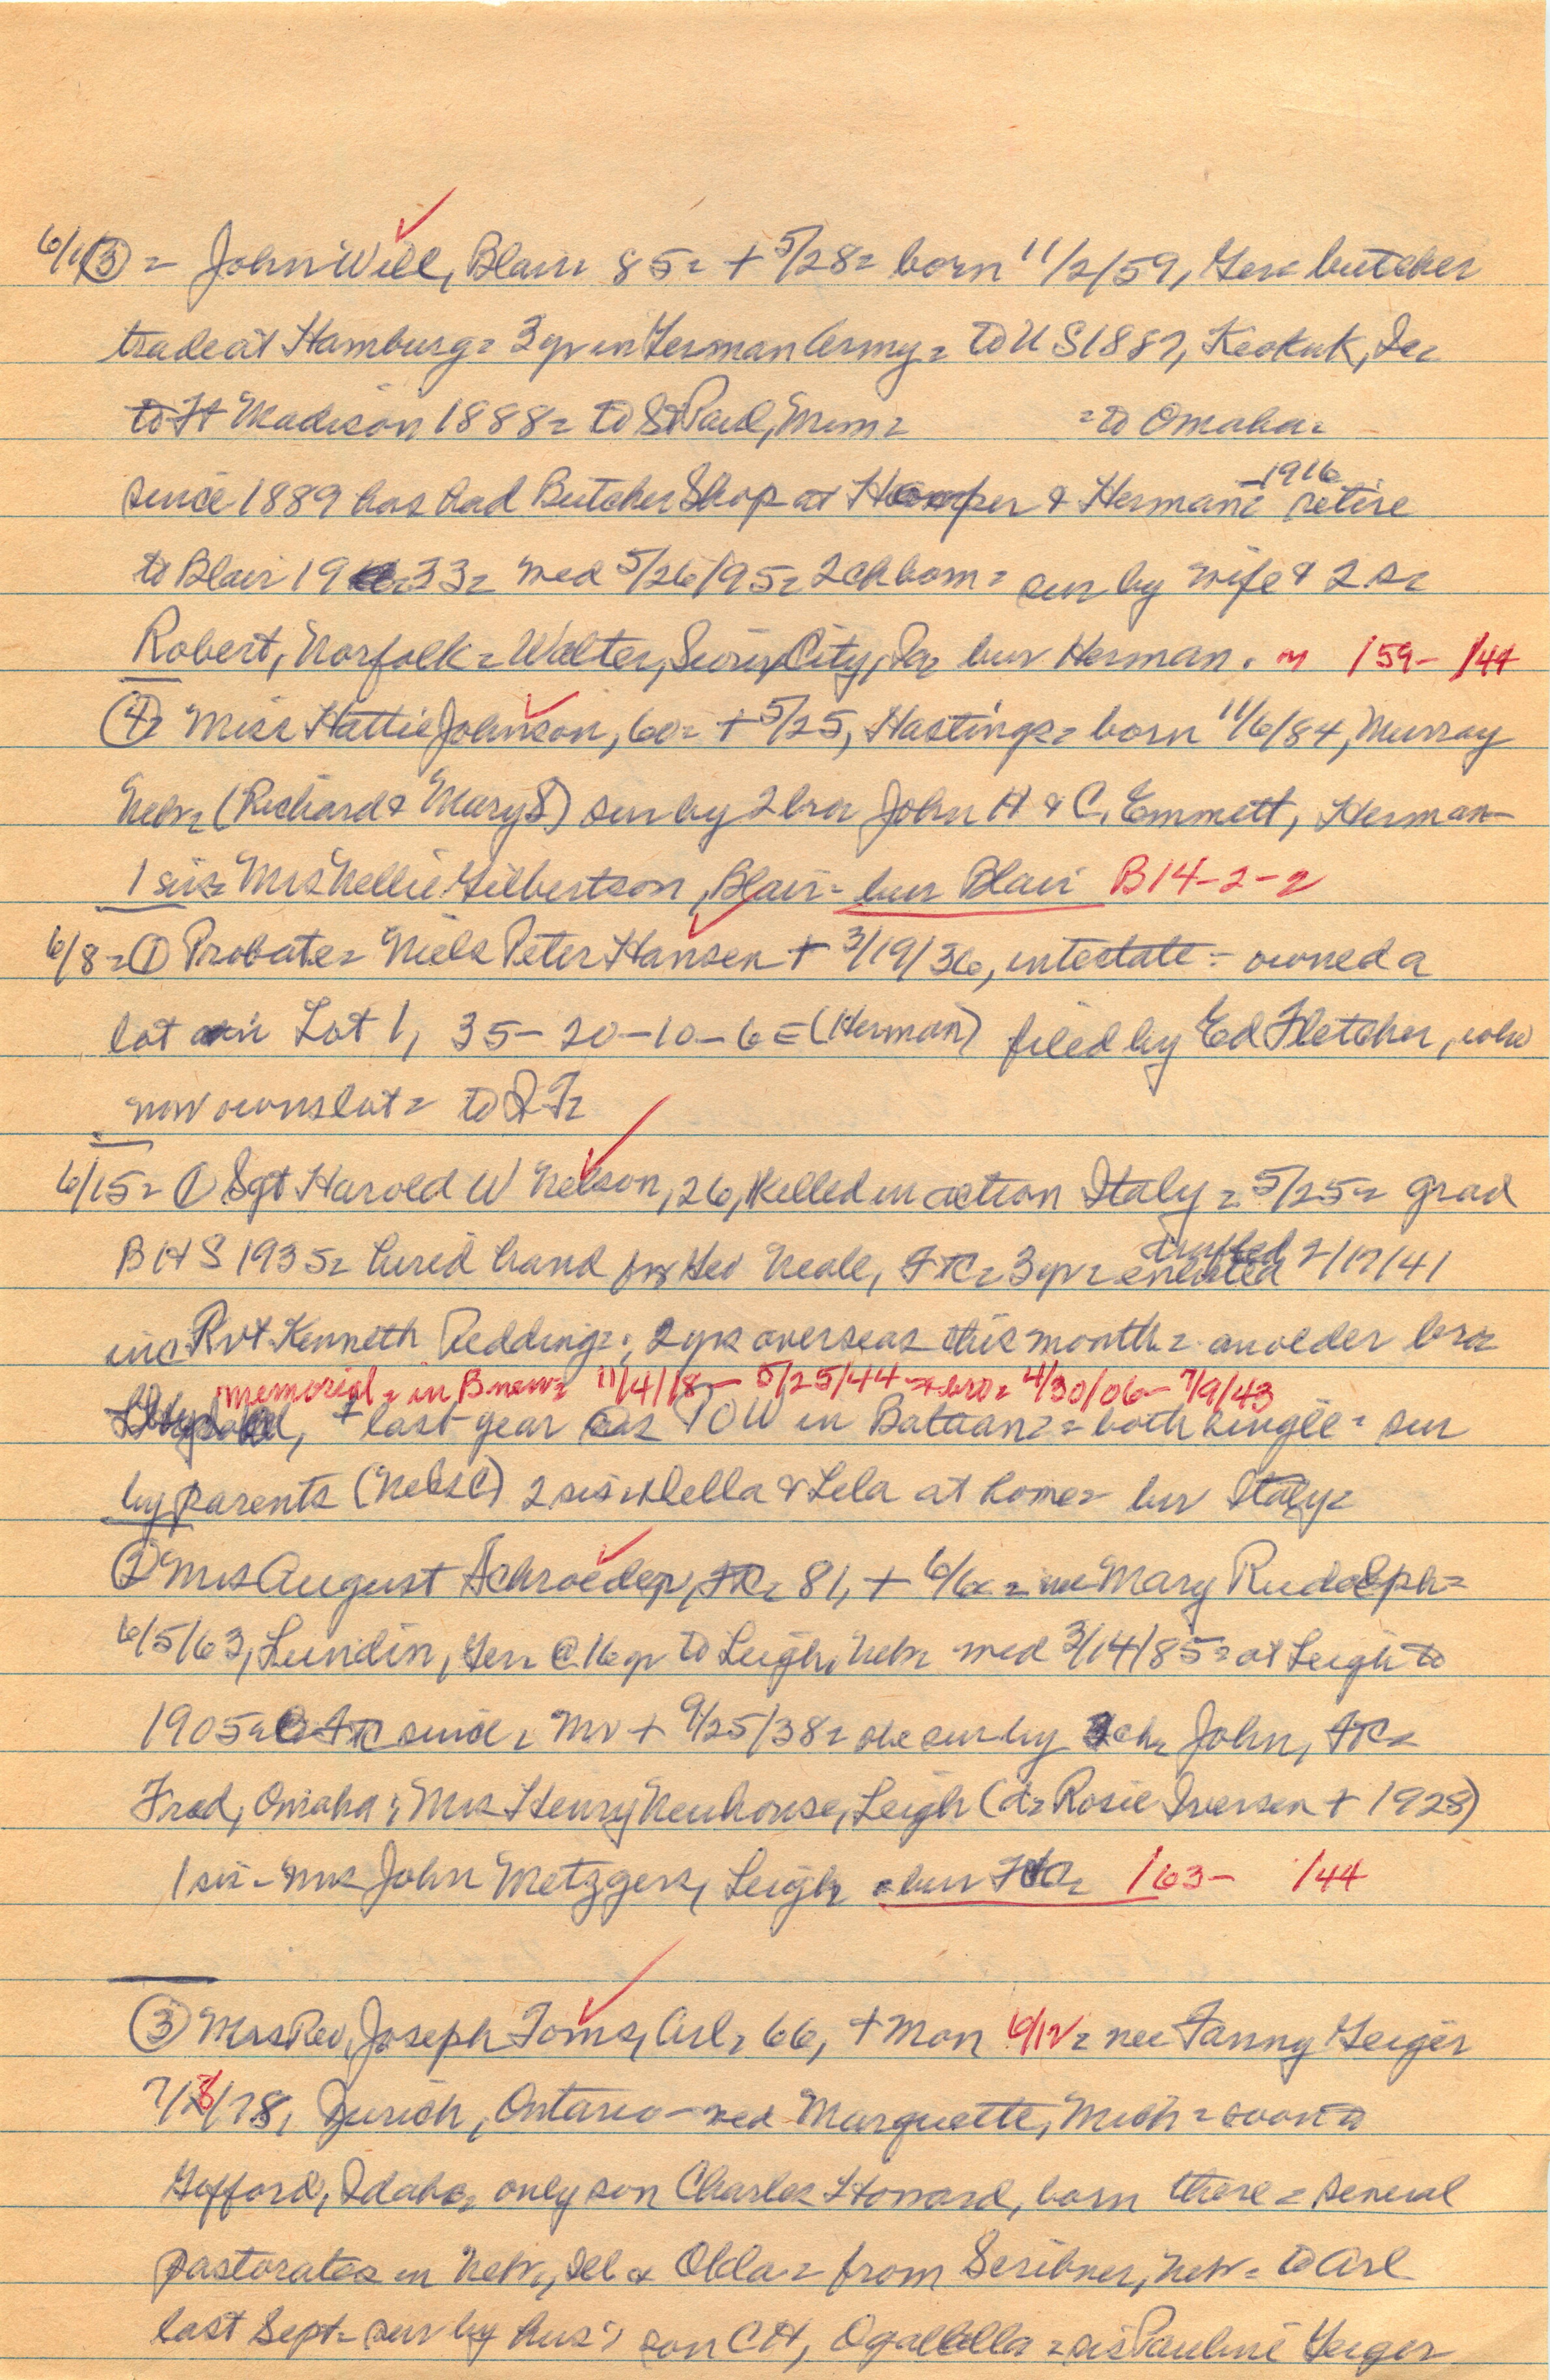 6/1 ③ = John Will, Blair = 85 = + 5/28 = born 11/2/59, Ger = butcher
trade at Hamburg = 3 yr in German Army = to US 1887, Keokuk, Ia =
to Ft Madison 1888 = to St Paul, Minn = = to Omaha =
since 1889 has had Butcher Shop at & Herman = 1916 retire
to Blair 19 33 = med 5/26/95 = 2 ch born = sur by wife & 2 s =
Robert, Norfolk = Walter, Sioux City, Ia = bur Herman. /59 - /44
④ = Miss Hattie Johnson, 60 = + 5/25, Hastings = born 11/6/84, Murray
Nebr = (Richard & Mary S) sur by 2 bro = John H & C. Emmett, Herman -
1 sis = Mrs Nellie Gilbertson, Blair - bur Blair B14-2-2
6/8 = ① Probate = Niels Peter Hansen + 3/19/36, intestate = owned a
lot in Lot 1, 35-20-10-6 E (Herman) filed by Ed Fletcher, who
now owns lot = to
6/15 = ① Sgt Harold W Nelson, 26, killed in action Italy = 5/25 = grad
BHS 1935 = hired hand for Geo Neale, FtC = 3 yr = enlisted drafted 2/17/41
inc Pvt Kenneth Redding = ; 2 yrs overseas this month = an older bro =
memorial = in B new = 11/4/18 - 5/25/44 = bro = 4/30/06 - 7/9/43
+ last year as POW in Bataan = = both single = sur
by parents (Nels C) 2 sis = Della & Lela at home = bur Italy =
② Mrs August Schroeder, FtC = 81, + 6/6 = nee Mary Rudolph =
6/5/63, Lundin, Ger = @ 16 yr to Leigh, Nebr = med 3/14/85 = at Leigh to
1905 = FtC since = Mr + 9/25/38 = she sur by 3 ch = John, FtC =
Fred, Omaha; Mrs Henry Neuhouse, Leigh (d = Rosie Iversen + 1928)
1 sis - Mrs John Metzger, Leigh = bur FtC = /63 - /44
③ Mrs Rev. Joseph Toms, Arl = 66, + Mon 6/12 = nee Fanny Geiger
7/8/78, Zurich, Ontario - med Marquette, Mich = soon to
Gifford, Idaho = only son Charles Howard, born there = several
pastorates in Nebr, Ill & Okla = from Scribner, Nebr = to Arl
last Sept = sur by hus; son CH, Ogallala = sis Pauline Geiger